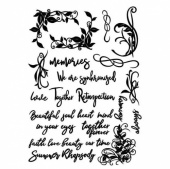 memories
We are synchronized
Love Together Retrospection
Beautiful soul heart mind
in your eyes together
forever
faith love beauty our time
Summer Rhapsody
always